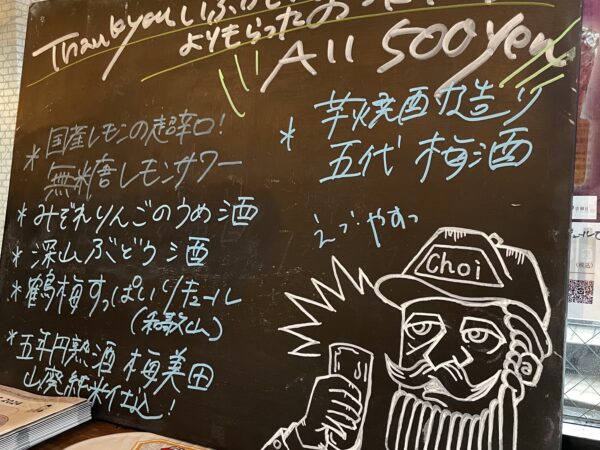 Thank you いぶ
よりもらった お
All 500 yen
* 国産レモンの超辛口!
無糖レモンサワー
* みぞれりんごのうめ酒
* 深山ぶどう酒
* 鶴梅すっぱいリキュール
(和歌山)
* 五年円熟酒 梅美田
山廃純米仕込!
* 芋焼酎造り
五代 梅酒
えっ…やすっ
Choi